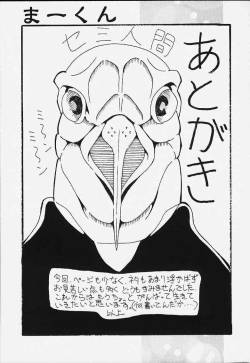 まーくん
セミ人間
あとがき
ミ〜ン
ミ〜ン
今回、ページも少なく、ネタもあまり浮かばず
お見苦しい点も多く どうもすみませんでした
これからは もうちょっと がんばって生きて
いきたいと思いまする。(何書いてんだか…)
以上